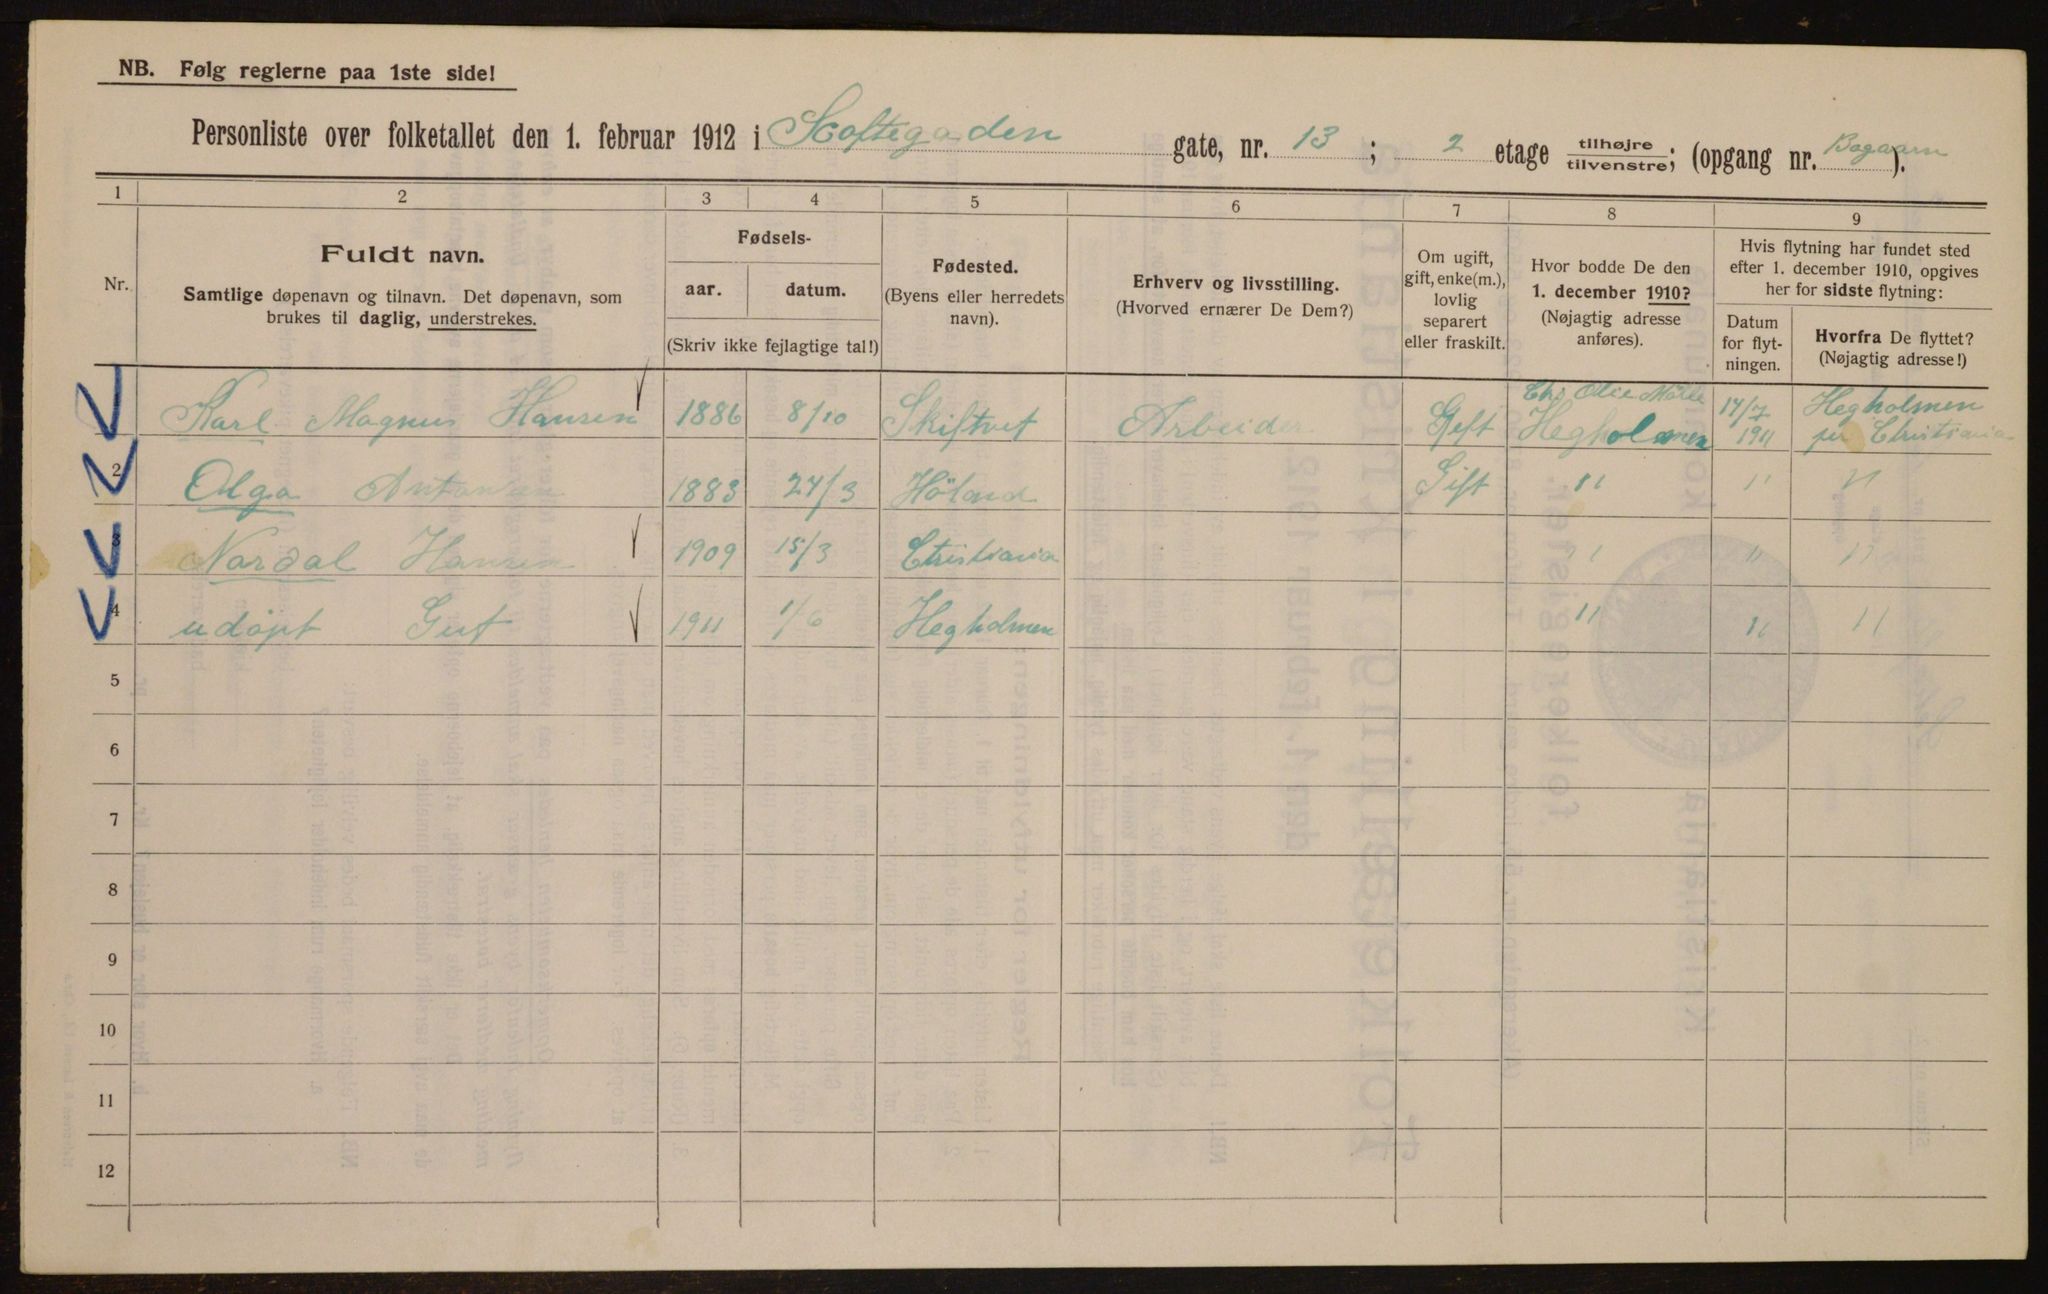 NB. Følg reglerne paa 1ste side!
Personliste over folketallet den 1. februar 1912 i Scoftegaden gate, nr. 13 ; 2 etage tilhøjre/tilvenstre; (opgang nr. Bagaarn ).
1 2 3 4 5 6 7 8 9
Nr.
Fuldt navn.
Samtlige døpenavn og tilnavn. Det døpenavn, som
brukes til daglig, understrekes.
Fødsels-
aar. datum.
(Skriv ikke fejlagtige tal!)
Fødested.
(Byens eller herredets
navn).
Erhverv og livsstilling.
(Hvorved ernærer De Dem?)
Om ugift,
gift, enke(m.),
lovlig
separert
eller fraskilt.
Hvor bodde De den
1. december 1910?
(Nøjagtig adresse
anføres).
Hvis flytning har fundet sted
efter 1. december 1910, opgives
her for sidste flytning:
Datum
for flyt-
ningen.
Hvorfra De flyttet?
(Nøjagtig adresse!)
Karl Magnus Hansen 1886 8/10 Skiftvet Arbeider Gift Chr Olie Mölle Hegholmen 14/7 1911 Hegholmen pr Christiania
2 Olga 1883 24/3 Höland Gift " " "
3 Nordal Hansen 1909 15/3 Christiania " " "
4 udöpt Gut 1911 1/6 Hegholmen " " "
5
6
7
8
9
10
11
12